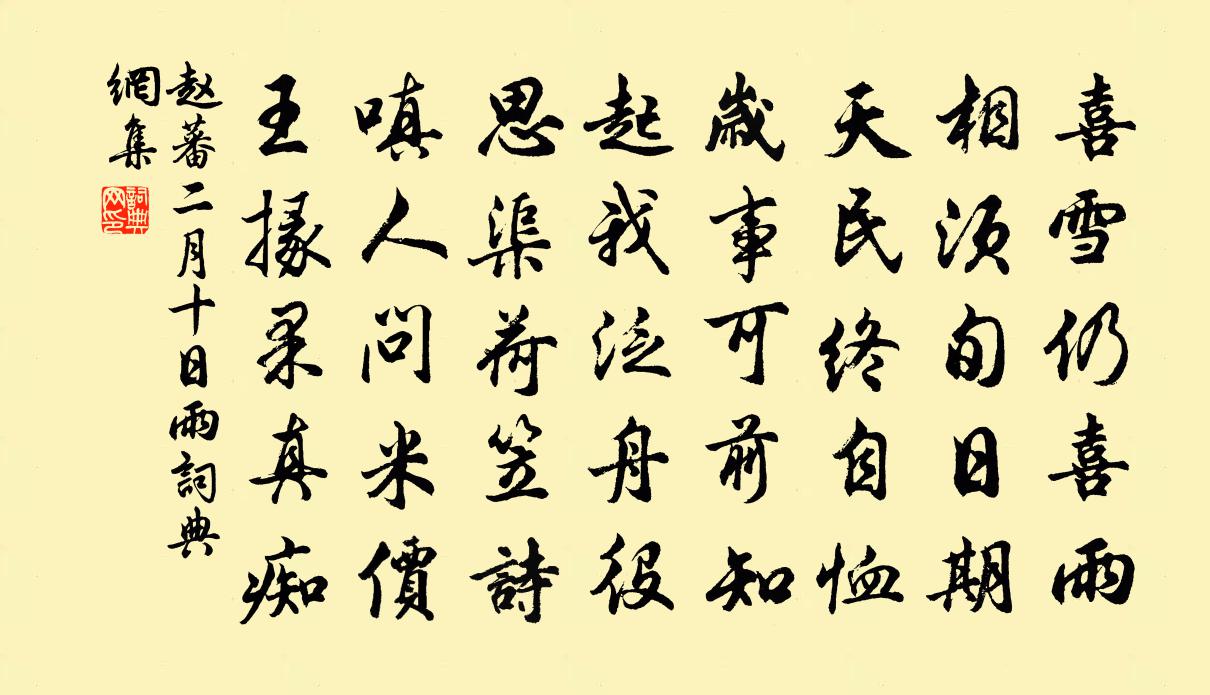 喜雪仍喜雨
相須旬日期
天民終自恤
歲事可前知
起我泛舟役
思渠荷笠詩
嗔人問米價
王掾果真痴
趙蕃二月十日雨詞典
網集
詞典網印